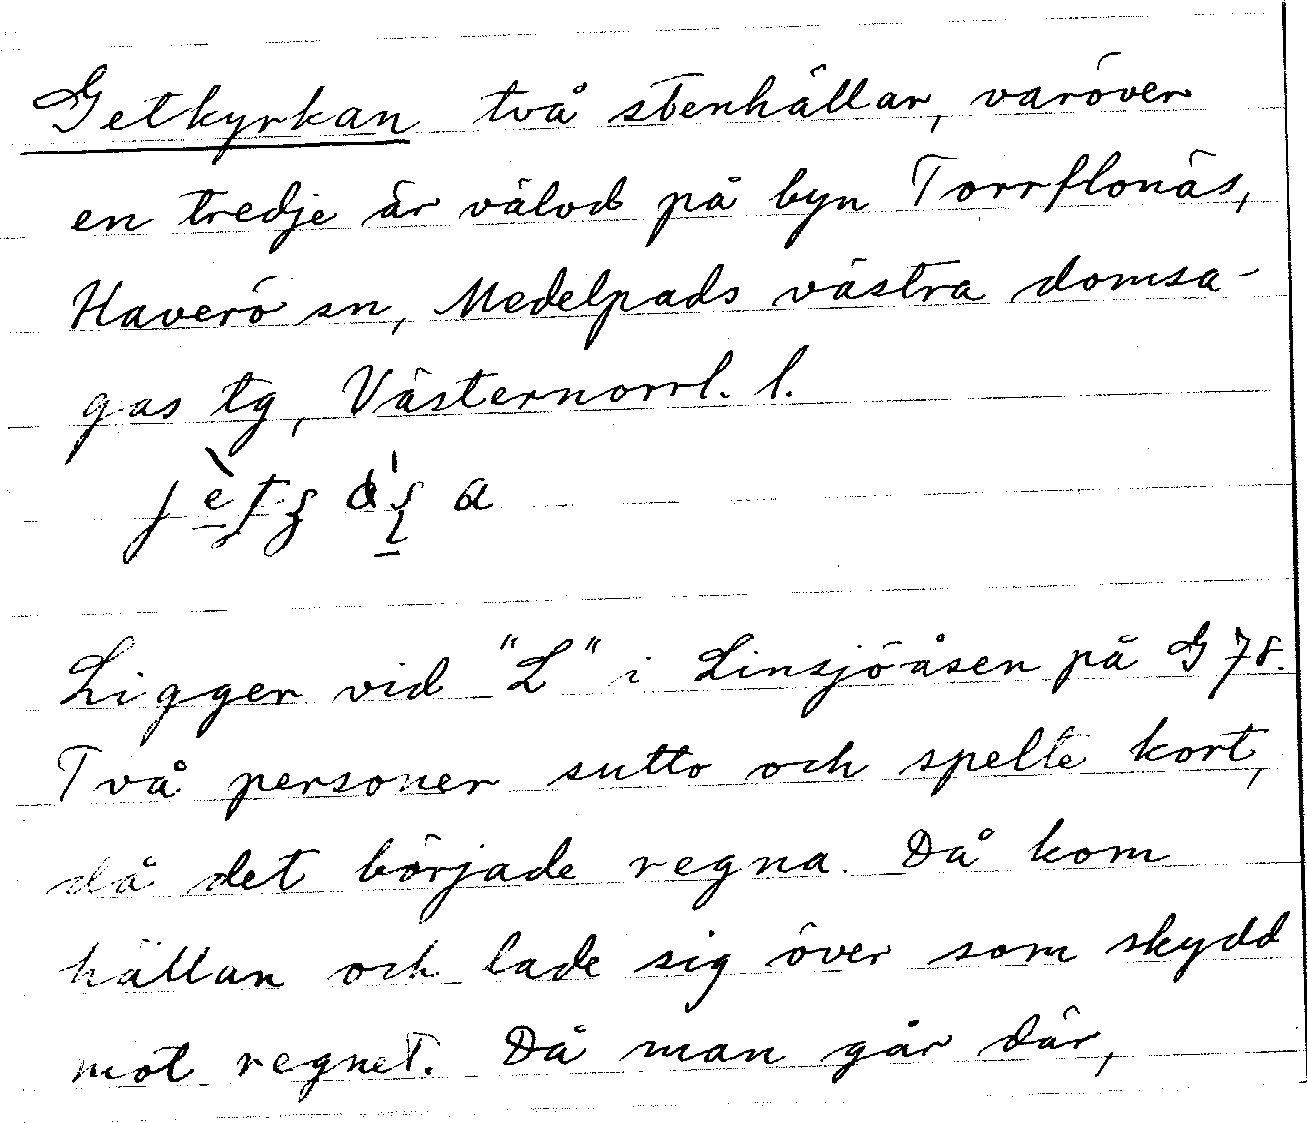 Getkyrkan två stenhällar, varöver
en tredje är välvd på byn Torrflonäs,
Haverö sn, Medelpads västra domsa-
gas tg, Västernorrl. l.
Ligger vid "L" i Linsjöåsen på G 78.
Två personer sutto och spelte kort,
då det började regna. Då kom
hällan och lade sig över som skydd
mot regnet. Då man går där,